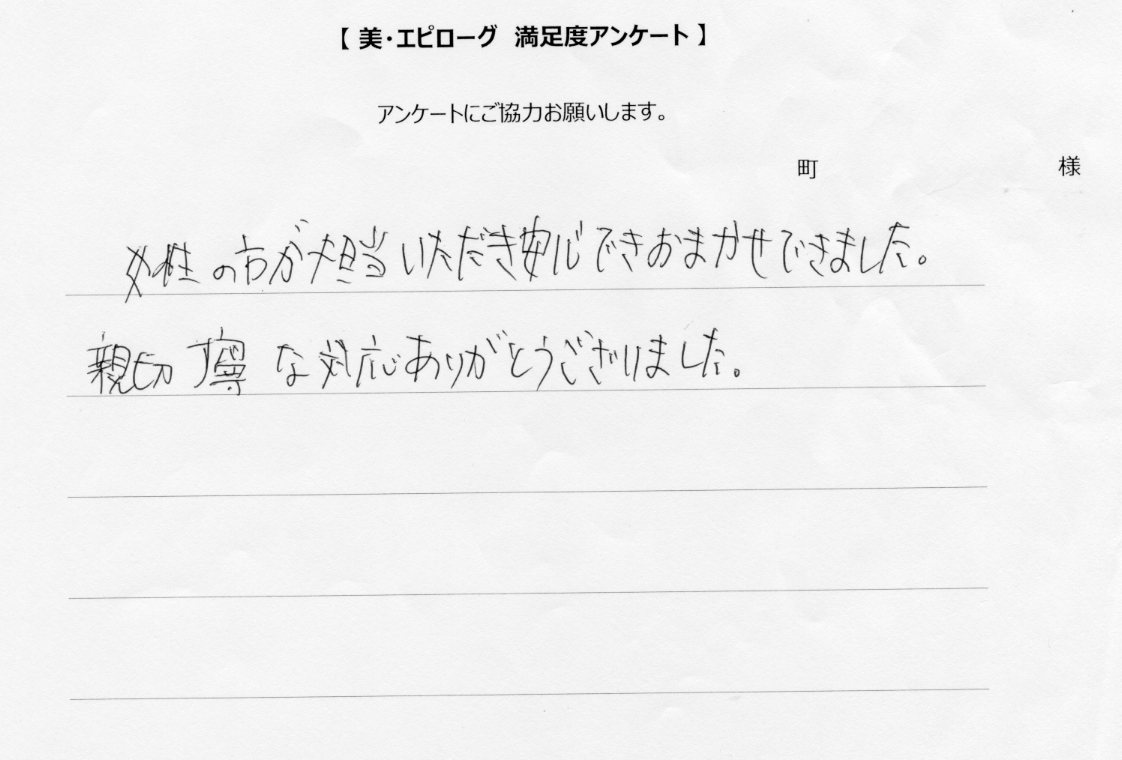 【 美・エピローグ 満足度アンケート 】
アンケートにご協力お願いします。
町 様
女性の方が担当いただき安心できおまかせできました。
親切丁寧な対応ありがとうございました。